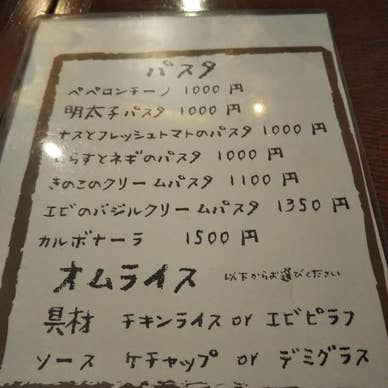 パスタ
ペペロンチーノ 1000円
明太子パスタ 1000円
ナスとフレッシュトマトのパスタ 1000円
しらすとネギのパスタ 1000円
きのこのクリームパスタ 1100円
エビのバジルクリームパスタ 1350円
カルボナーラ 1500円
オムライス 以下からお選びください
具材 チキンライス or エビピラフ
ソース ケチャップ or デミグラス